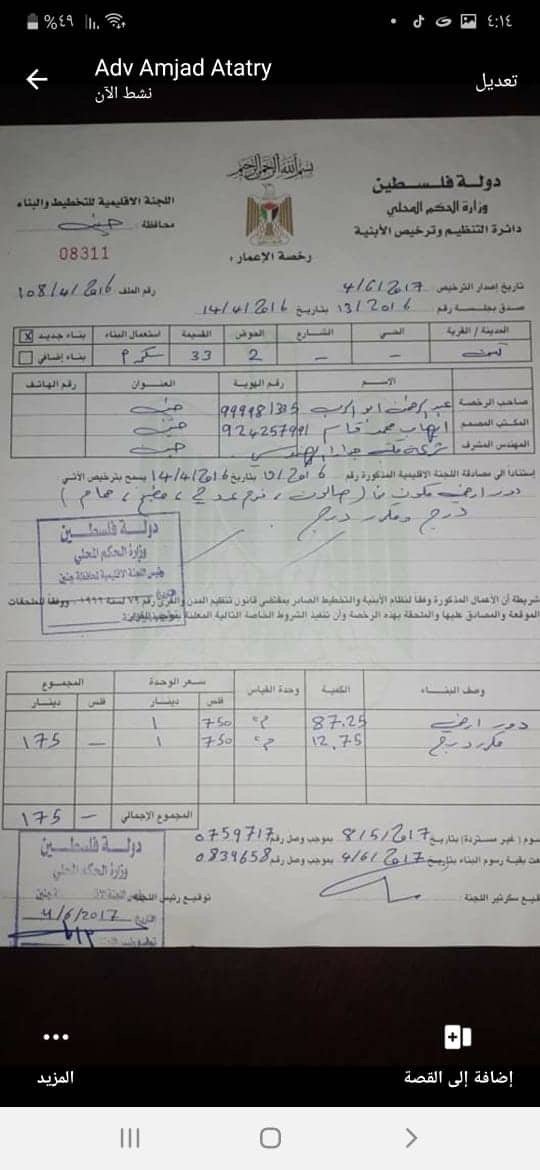 ٤:١٤
%٤٩
Adv Amjad Atatry
نشط الآن
تعديل
بسم الله الرحمن الرحيم
دولة فلسطين
وزارة الحكم المحلي
دائرة التنظيم وترخيص الأبنية
اللجنة الاقليمية للتخطيط والبناء
محافظة جنين
08311
رخصة الإعمار:
تاريخ إصدار الترخيص 4/6/2017
رقم الملف 108/4/2016
صدق بجلسة رقم 13/2016 بتاريخ 14/4/2016
المدينة / القرية الحي الشارع الحوض القسيمة استعمال البناء بناء جديد x
– – 2 33 بناء إضافي
الاســم رقم الهوية العنوان رقم الهاتف
صاحب الرخصة 999981335 جنين
المكتب المصمم 924257991 جنين
المهندس المشرف جنين
إستنادا الى مصادقة اللجنة الاقليمية المذكورة رقم بتاريخ 14/4/2016 يسمح بترخيص الآتي
دور ارضي مكون من (صالون، مطبخ، حمام)
درج ومكرر درج
دولة فلسطين
وزارة الحكم المحلي
رئيس اللجنة الاقليمية لمحافظة جنين
شريطة أن الأعمال المذكورة وفقا لنظام الأبنية والتخطيط الصادر بمقتضى قانون تنظيم المدن والقرى رقم ٧٩ لسنة ١٩٦٦، ووفقا للملحقات
الموقعة والمصادق عليها والملحقة بهذه الرخصة وأن تنفذ الشروط الخاصة التالية المعلنة
وصف البنــاء الكمية وحدة القياس سعر الوحدة المجموع
فلس دينار فلس دينار
دور ارضي 87.25 م٢ 750 1
مكرر درج 12.75 م٢ 750 1 – 175
المجموع الإجمالي – 175
سوم (غير مستردة) بتاريخ 8/5/2017 بموجب وصل رقم 0759717
عت بقية رسوم البناء بتاريخ 4/6/2017 بموجب وصل رقم 0839658
قيع سكرتير اللجنة
توقيع رئيس اللجنة
دولة فلسطين
وزارة الحكم المحلي
4/6/2017
إضافة إلى القصة
المزيد